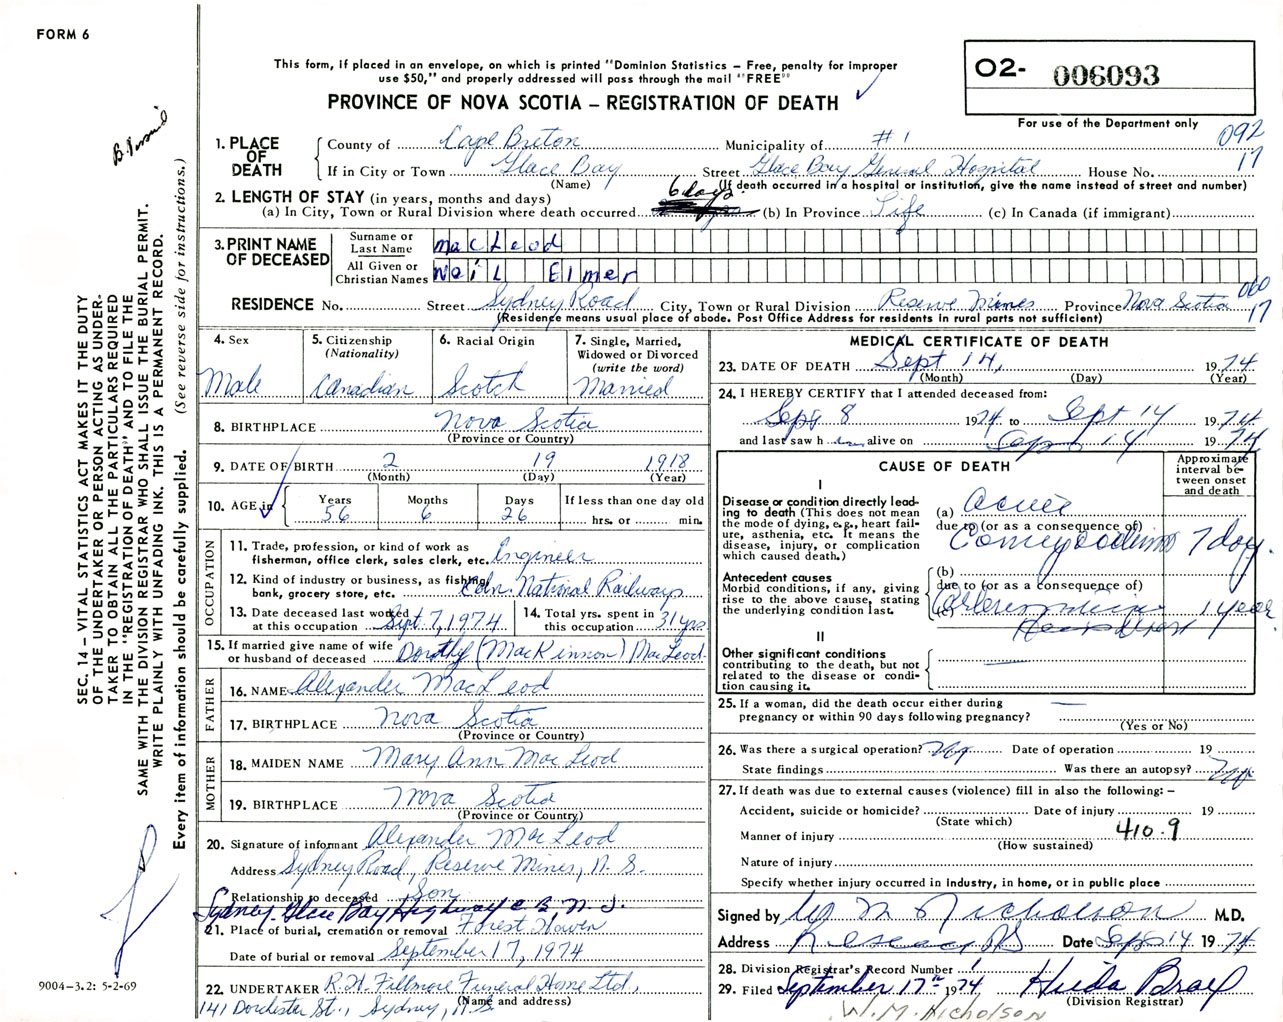 FORM 6
This form, if placed in an envelope, on which is printed "Dominion Statistics – Free, penalty for improper
use $50," and properly addressed will pass through the mail "FREE"
PROVINCE OF NOVA SCOTIA – REGISTRATION OF DEATH
O2- 006093
For use of the Department only
092
17
1. PLACE OF DEATH
County of Cape Breton Municipality of #1
If in City or Town Glace Bay Street Glace Bay General Hospital House No.
(Name) (If death occurred in a hospital or institution, give the name instead of street and number)
2. LENGTH OF STAY (in years, months and days)
6 days
(a) In City, Town or Rural Division where death occurred (b) In Province Life (c) In Canada (if immigrant)
3. PRINT NAME OF DECEASED
Surname or Last Name MacLeod
All Given or Christian Names Neil Elmer
060
17
RESIDENCE No. Street Sydney Road City, Town or Rural Division Reserve Mines Province Nova Scotia
(Residence means usual place of abode. Post Office Address for residents in rural parts not sufficient)
4. Sex Male
5. Citizenship (Nationality) Canadian
6. Racial Origin Scotch
7. Single, Married, Widowed or Divorced (write the word) Married
8. BIRTHPLACE Nova Scotia
(Province or Country)
9. DATE OF BIRTH 2 19 1918
(Month) (Day) (Year)
10. AGE in Years 56 Months 6 Days 26 If less than one day old hrs. or min.
OCCUPATION
11. Trade, profession, or kind of work as
fisherman, office clerk, sales clerk, etc. Engineer
12. Kind of industry or business, as fishing,
bank, grocery store, etc. Cdn. National Railways
13. Date deceased last worked
at this occupation Sept. 7, 1974
14. Total yrs. spent in
this occupation 31 yrs
15. If married give name of wife
or husband of deceased Dorothy (MacKinnon) MacLeod
FATHER
16. NAME Alexander MacLeod
17. BIRTHPLACE Nova Scotia
(Province or Country)
MOTHER
18. MAIDEN NAME Mary Ann MacLeod
19. BIRTHPLACE Nova Scotia
(Province or Country)
20. Signature of informant Alexander MacLeod
Address Sydney Road, Reserve Mines, N.S.
Relationship to deceased Son
Sydney-Glace Bay Highway C.B., N.S.
21. Place of burial, cremation or removal Forest Haven
Date of burial or removal September 17, 1974
22. UNDERTAKER R.W. Fillmore Funeral Home Ltd,
(Name and address)
141 Dorchester St., Sydney, N.S.
MEDICAL CERTIFICATE OF DEATH
23. DATE OF DEATH Sept 14, 1974
(Month) (Day) (Year)
24. I HEREBY CERTIFY that I attended deceased from:
Sept 8 1974 to Sept 14 1974
and last saw h im alive on Sept 14 1974
CAUSE OF DEATH
Approximate interval between onset and death
I
Disease or condition directly leading to death (This does not mean the mode of dying, e.g., heart failure, asthenia, etc. It means the disease, injury, or complication which caused death.)
(a) Acute
due to (or as a consequence of)
7 day
Antecedent causes
Morbid conditions, if any, giving rise to the above cause, stating the underlying condition last.
(b)
due to (or as a consequence of)
(c) 1 year
II
Other significant conditions
contributing to the death, but not related to the disease or condition causing it.
25. If a woman, did the death occur either during
pregnancy or within 90 days following pregnancy?
(Yes or No)
26. Was there a surgical operation? No Date of operation 19
State findings Was there an autopsy? No
27. If death was due to external causes (violence) fill in also the following: –
Accident, suicide or homicide? Date of injury 19
(State which)
410.9
Manner of injury
(How sustained)
Nature of injury
Specify whether injury occurred in industry, in home, or in public place
Signed by W M Nicholson M.D.
Address Date Sept 14 1974
28. Division Registrar's Record Number 1
29. Filed September 17th 1974
(Division Registrar)
W.M. Nicholson
SEC. 14 – VITAL STATISTICS ACT MAKES IT THE DUTY
OF THE UNDERTAKER OR PERSON ACTING AS UNDER-
TAKER TO OBTAIN ALL THE PARTICULARS REQUIRED
IN THE "REGISTRATION OF DEATH" AND TO FILE THE
SAME WITH THE DIVISION REGISTRAR WHO SHALL ISSUE THE BURIAL PERMIT.
WRITE PLAINLY WITH UNFADING INK. THIS IS A PERMANENT RECORD.
Every item of information should be carefully supplied. (See reverse side for instructions.)
9004-3.2: 5-2-69